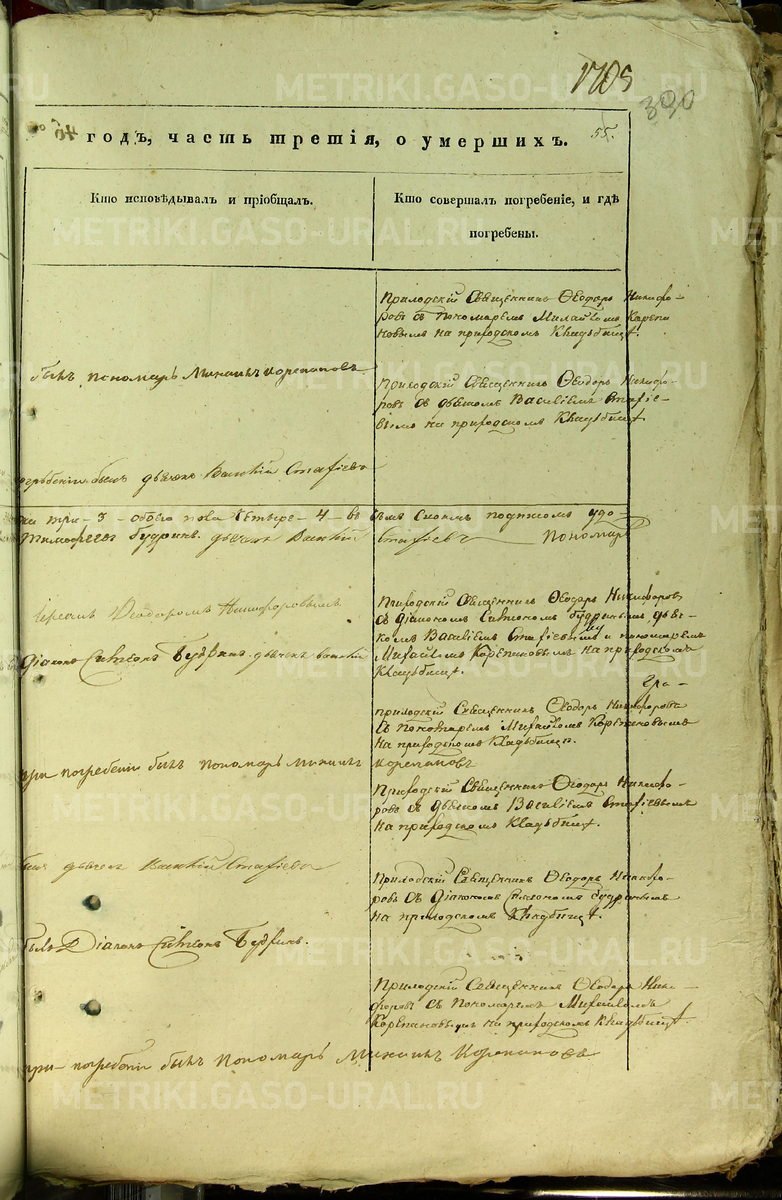 1705
390
годъ, часть третія, о умершихъ.
55.
Кто исповѣдывалъ и пріобщалъ.
Кто совершалъ погребеніе, и гдѣ
погребены.
Приходскій Священникъ Ѳеодоръ Никифо-
ровъ съ пономаремъ Михайломъ Корепа
новымъ на приходскомъ Кладбищѣ.
былъ пономарь Михаилъ Корепановъ
Приходскій Священникъ Ѳеодоръ Никифо-
ровъ съ дьячкомъ Василіемъ Стафіе-
вымъ на приходскомъ Кладбищѣ
погребеніи былъ дьячекъ Василій Стафіевъ
три - 3 - обоего пола четыре - 4 - въ
Тимофеевъ Будринъ. дьячекъ Василій Стафіевъ Пономарь
Іереемъ Ѳеодоромъ Никифоровымъ
Приходскій Священникъ Ѳеодоръ Никифоровъ
съ діакономъ Симеономъ Будринымъ дьяч-
комъ Василіемъ Стафіевымъ и пономаремъ
Михайломъ Корепановымъ на приходскомъ
Кладбищѣ.
Діаконъ Симеонъ Будринъ. дьячекъ Василій
Приходскій Священникъ Ѳеодоръ Никифоровъ
съ Пономаремъ Михайломъ Корепановымъ
на приходскомъ Кладбищѣ.
при погребеніи былъ пономарь Михаилъ Корепановъ
Приходскій Священникъ Ѳеодоръ Никифо-
ровъ съ дьячкомъ Василіемъ Стафіевымъ
на приходскомъ Кладбищѣ.
былъ дьячекъ Василій Стафіевъ
Приходскій Священникъ Ѳеодоръ Никифо-
ровъ съ Діакономъ Симеономъ Будринымъ
на приходскомъ Кладбищѣ.
былъ Діаконъ Симеонъ Будринъ.
Приходскій Священникъ Ѳеодоръ Ники-
форовъ съ Пономаремъ Михайломъ
Корепановымъ на приходскомъ Кладбищѣ.
при погребеніи былъ Пономарь Михаилъ Корепановъ
METRIKI.GASO-URAL.RU